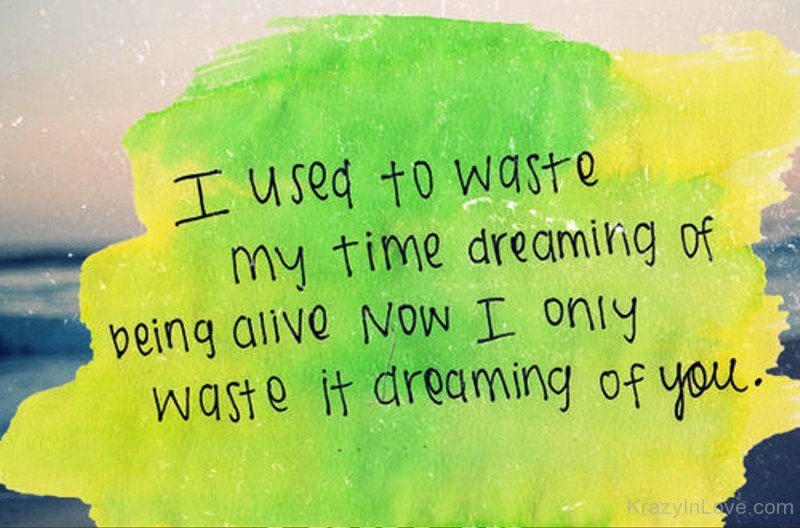 I used to waste
my time dreaming of
being alive Now I only
waste it dreaming of you.
KrazyInLove.com